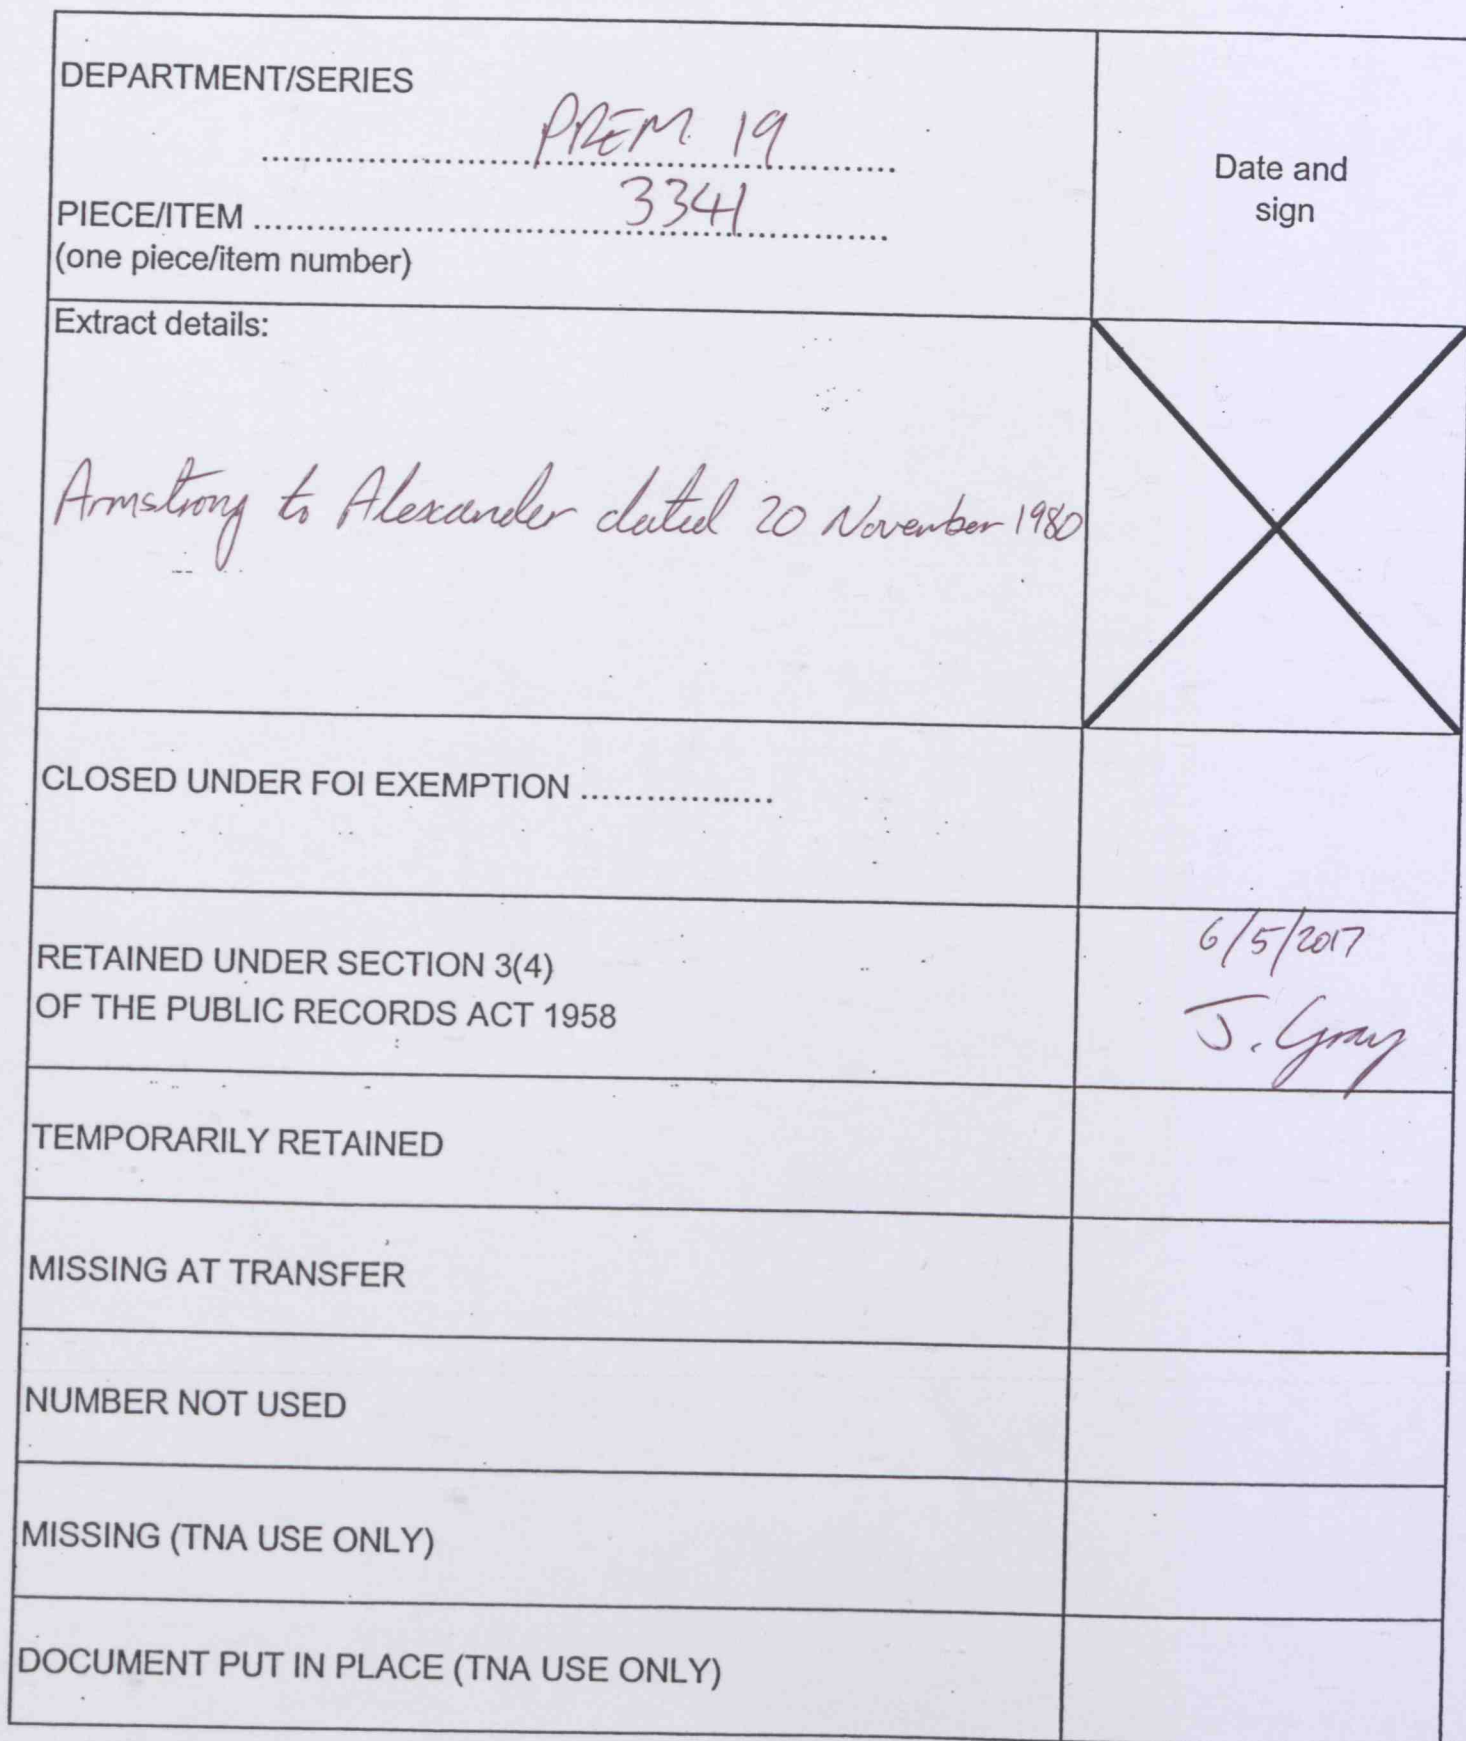 DEPARTMENT/SERIES
PREM 19
Date and
sign
PIECE/ITEM ........................ 3341
(one piece/item number)
Extract details:
Armstrong to Alexander dated 20 November 1980
CLOSED UNDER FOI EXEMPTION ..................
RETAINED UNDER SECTION 3(4)
OF THE PUBLIC RECORDS ACT 1958
6/5/2017
J. Gray
TEMPORARILY RETAINED
MISSING AT TRANSFER
NUMBER NOT USED
MISSING (TNA USE ONLY)
DOCUMENT PUT IN PLACE (TNA USE ONLY)